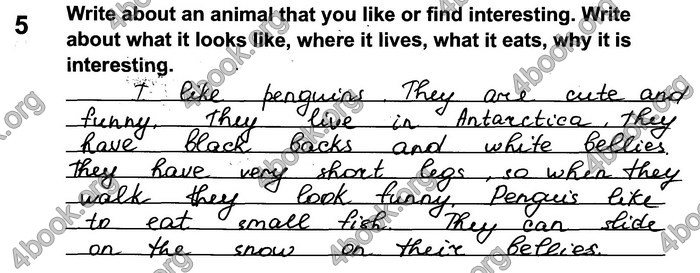 5 Write about an animal that you like or find interesting. Write
about what it looks like, where it lives, what it eats, why it is
interesting.
I like penguins. They are cute and
funny. They live in Antarctica. They
have black backs and white bellies.
They have very short legs, so when they
walk they look funny. Penguis like
to eat small fish. They can slide
on the snow on their bellies.
4book.org